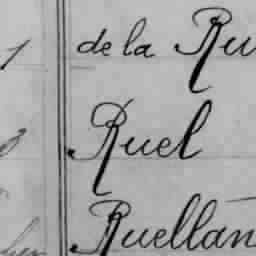 de la Ru
Ruel
Ruellan